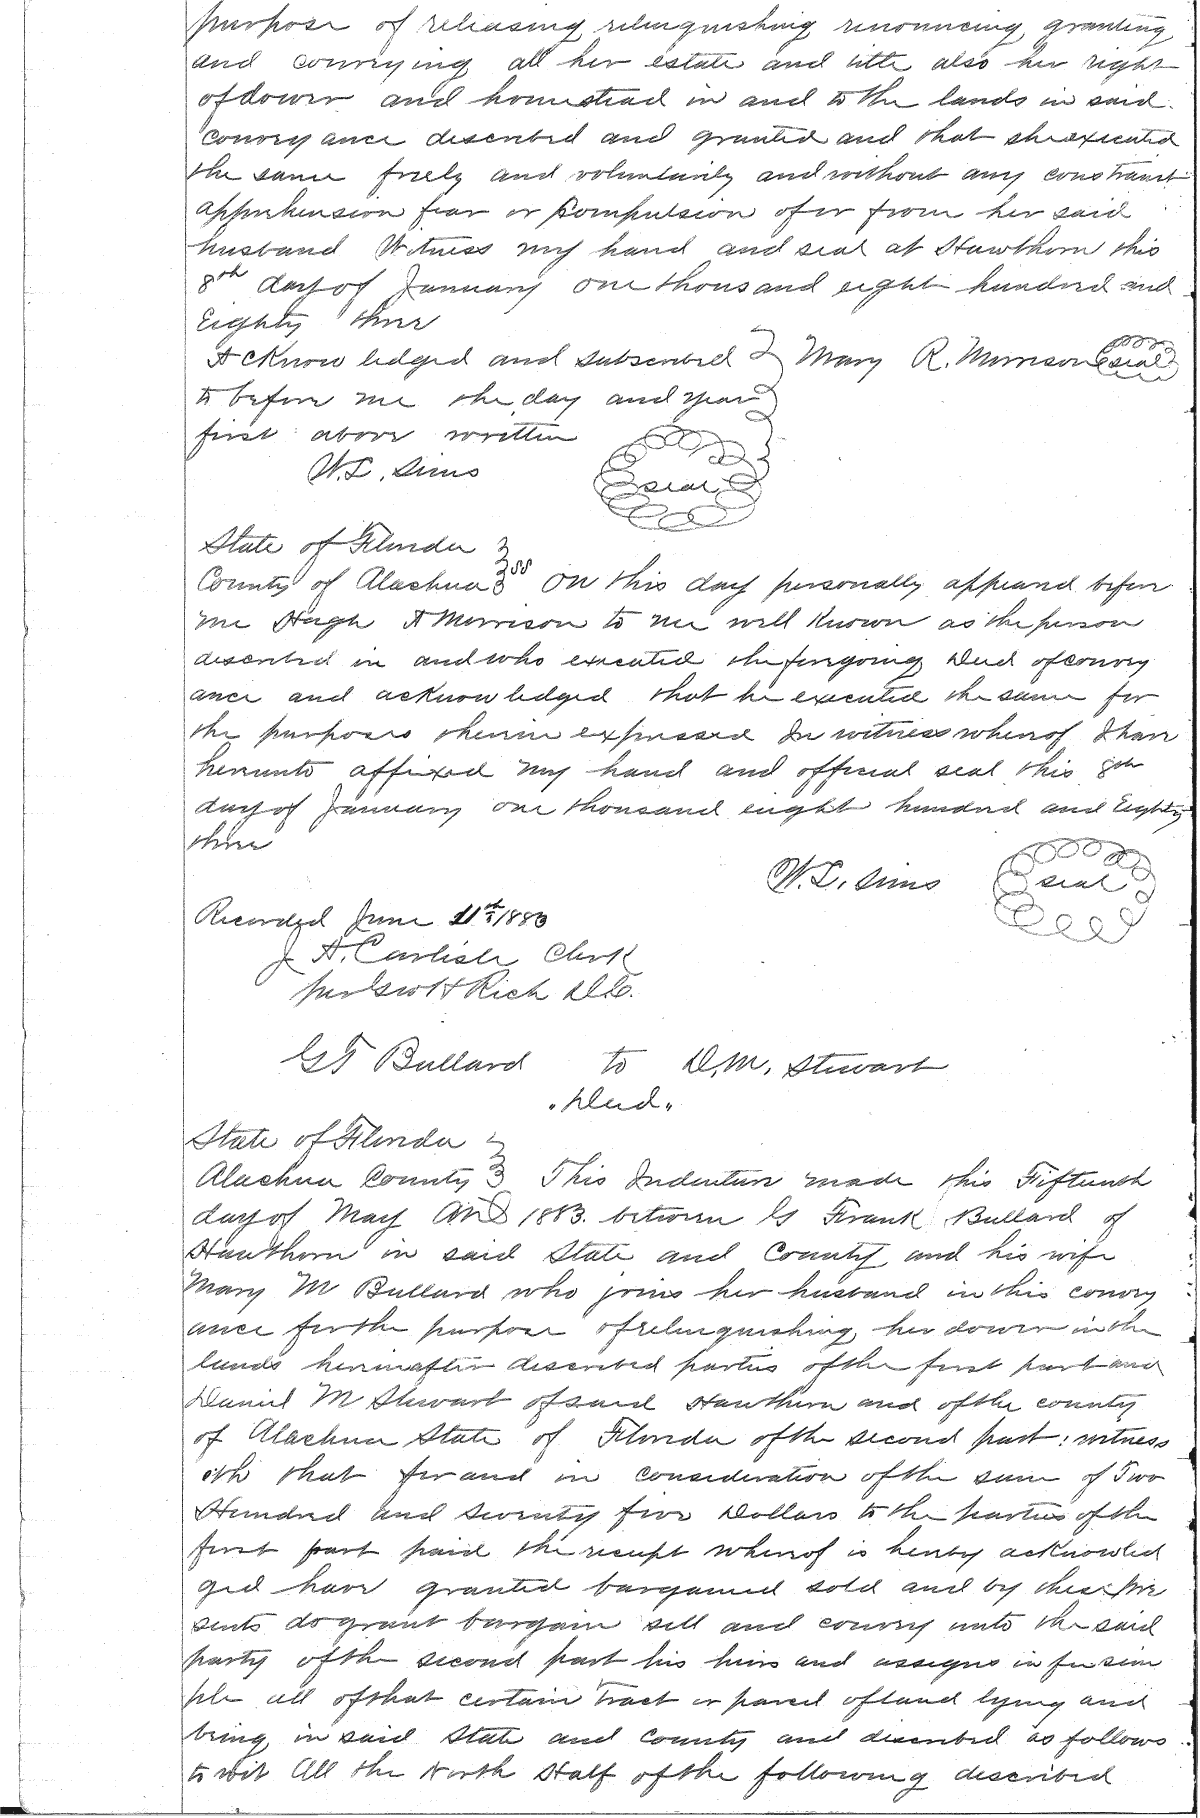 purpose of releasing relinquishing renouncing granting
and conveying all her estate and title also her right
of dower and homestead in and to the lands in said
convey ance described and granted and that she executed
the same freely and voluntarily and without any constraint
apprehension fear or compulsion of or from her said
husband Witness my hand and seal at Hawthorn this
8th day of January one thousand eight hundred and
Eighty three
Acknow ledged and subscribed Mary R. Morrison seal
to before me the day and year
first above written
W. L. Sims seal
State of Florida
County of Alachua ss On this day personally appeared before
me Hugh A Morrison to me well known as the person
described in and who executed the foregoing Deed of convey
ance and acknow ledged that he executed the same for
the purposes therein expressed In witness whereof I have
hereunto affixed my hand and official seal this 8th
day of January one thousand eight hundred and Eighty
three
W. L. Sims seal
Recorded June 11th 1883
J A. Carlisle Clerk
per Geo H Rich D.C.
G F Bullard to D. M. Stewart
"Deed"
State of Florida
Alachua County This Indenture made this Fifteenth
day of May AD 1883. between G Frank Bullard of
Hawthorn in said State and County and his wife
Mary M Bullard who joins her husband in this convey
ance for the purpose of relinquishing her dower in the
lands hereinafter described parties of the first part and
Daniel M Stewart of said Hawthorn and of the county
of Alachua State of Florida of the second part: witness
eth that for and in consideration of the sum of Two
Hundred and Seventy five Dollars to the parties of the
first part paid the receipt whereof is hereby acknowled
ged have granted bargained sold and by these Pre
sents do grant bargain sell and convey unto the said
party of the second part his heirs and assigns in fee sim
ple all of that certain Tract or parcel of land lying and
being in said State and County and described as follows
to wit All the North Half of the following described